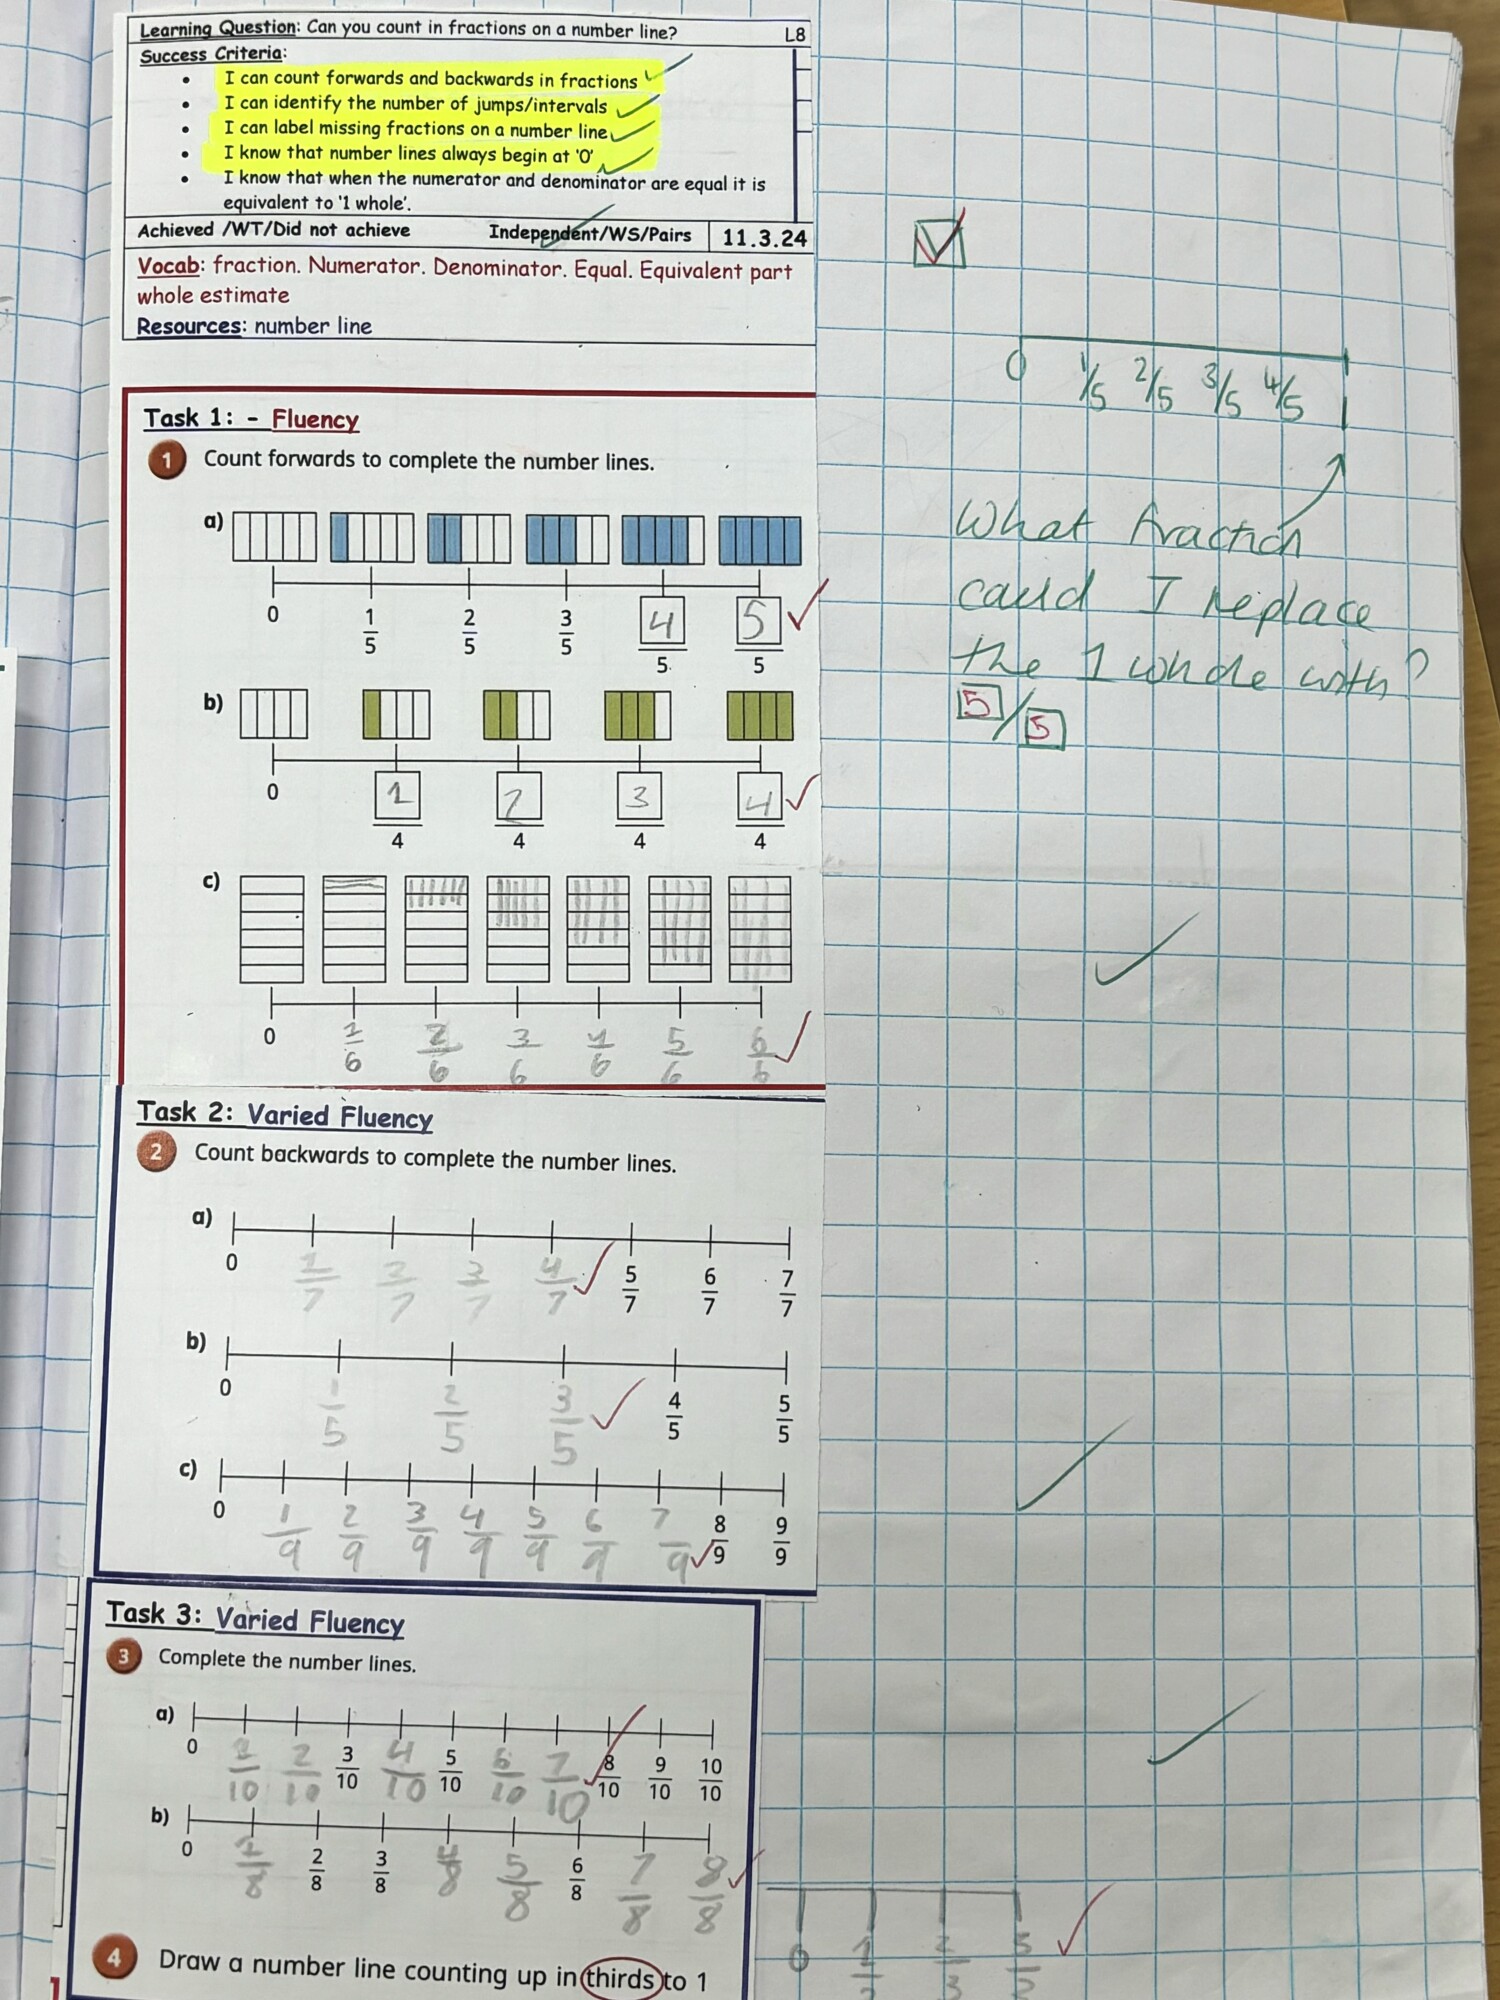 Learning Question: Can you count in fractions on a number line? L8
Success Criteria:
• I can count forwards and backwards in fractions
• I can identify the number of jumps/intervals
• I can label missing fractions on a number line
• I know that number lines always begin at '0'
• I know that when the numerator and denominator are equal it is
equivalent to '1 whole'.
Achieved /WT/Did not achieve Independent/WS/Pairs 11.3.24
Vocab: fraction. Numerator. Denominator. Equal. Equivalent part
whole estimate
Resources: number line
0 1/5 2/5 3/5 4/5
What fraction
could I replace
the 1 whole with?
5/5
Task 1: - Fluency
1 Count forwards to complete the number lines.
a)
0 1/5 2/5 3/5 4/5 5/5
b)
0 1/4 2/4 3/4 4/4
c)
0 1/6 2/6 3/6 4/6 5/6 6/6
Task 2: Varied Fluency
2 Count backwards to complete the number lines.
a)
0 1/7 2/7 3/7 4/7 5/7 6/7 7/7
b)
0 1/5 2/5 3/5 4/5 5/5
c)
0 1/9 2/9 3/9 4/9 5/9 6/9 7/9 8/9 9/9
Task 3: Varied Fluency
3 Complete the number lines.
a)
0 1/10 2/10 3/10 4/10 5/10 6/10 7/10 8/10 9/10 10/10
b)
0 1/8 2/8 3/8 4/8 5/8 6/8 7/8 8/8
4 Draw a number line counting up in thirds to 1
0 1/3 2/3 3/3